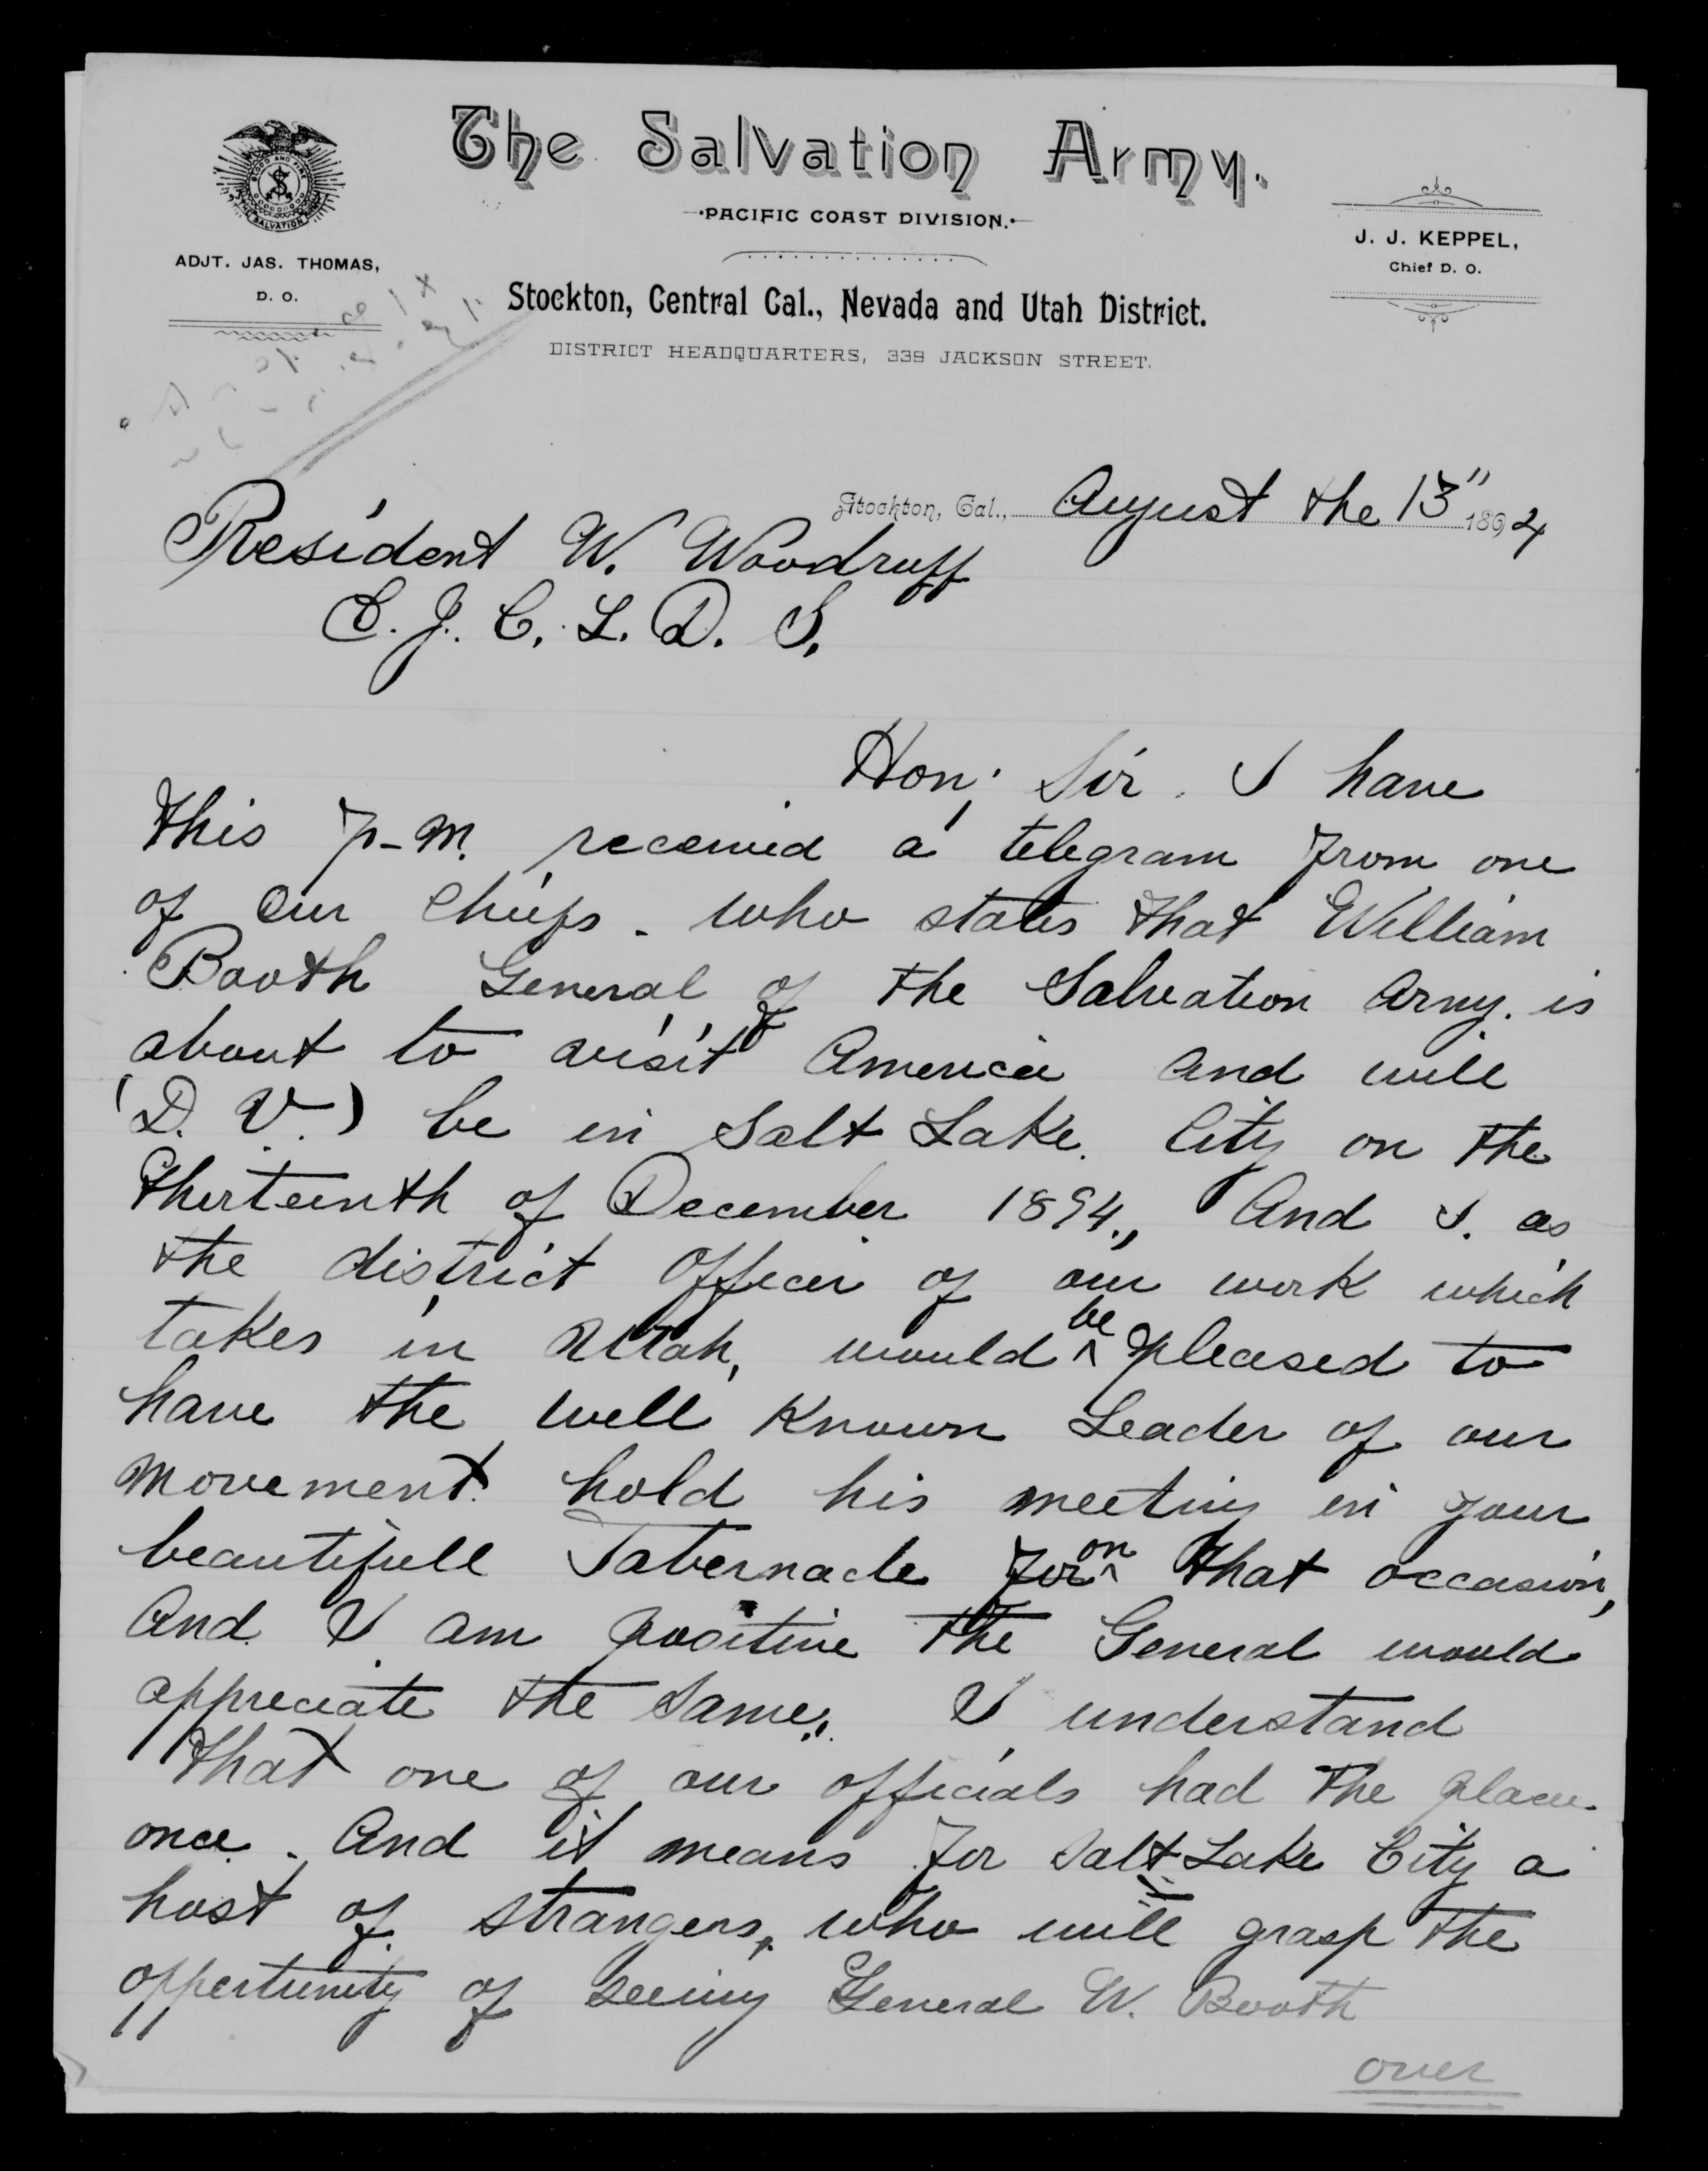 The Salvation Army.
PACIFIC COAST DIVISION.
BLOOD AND FIRE
THE SALVATION ARMY
ADJT. JAS. THOMAS,
D. O.
J. J. KEPPEL,
Chief D. O.
Stockton, Central Cal., Nevada and Utah District.
DISTRICT HEADQUARTERS, 339 JACKSON STREET.
Stockton, Cal., August the 13" 1894
President W. Woodruff
C. J. C. L. D. S.
Hon; Sir. I have
this p-m. received a telegram from one
of our Chiefs - who states that William
Booth General of the Salvation Army. is
about to visit America and will
(D. V.) be in Salt Lake. City on the
thirteenth of December 1894., And I. as
the district Officer of our work which
takes in Utah, would ^be pleased to
have the well known Leader of our
movement. hold his meeting in your
beautifull Tabernacle for ^on that occasion,
And I am positive the General would
appreciate the same. I understand
that one of our officials had the place
once. And it means for Salt Lake City a
host of strangers, who will grasp the
oppertunity of seeing General W. Booth
over